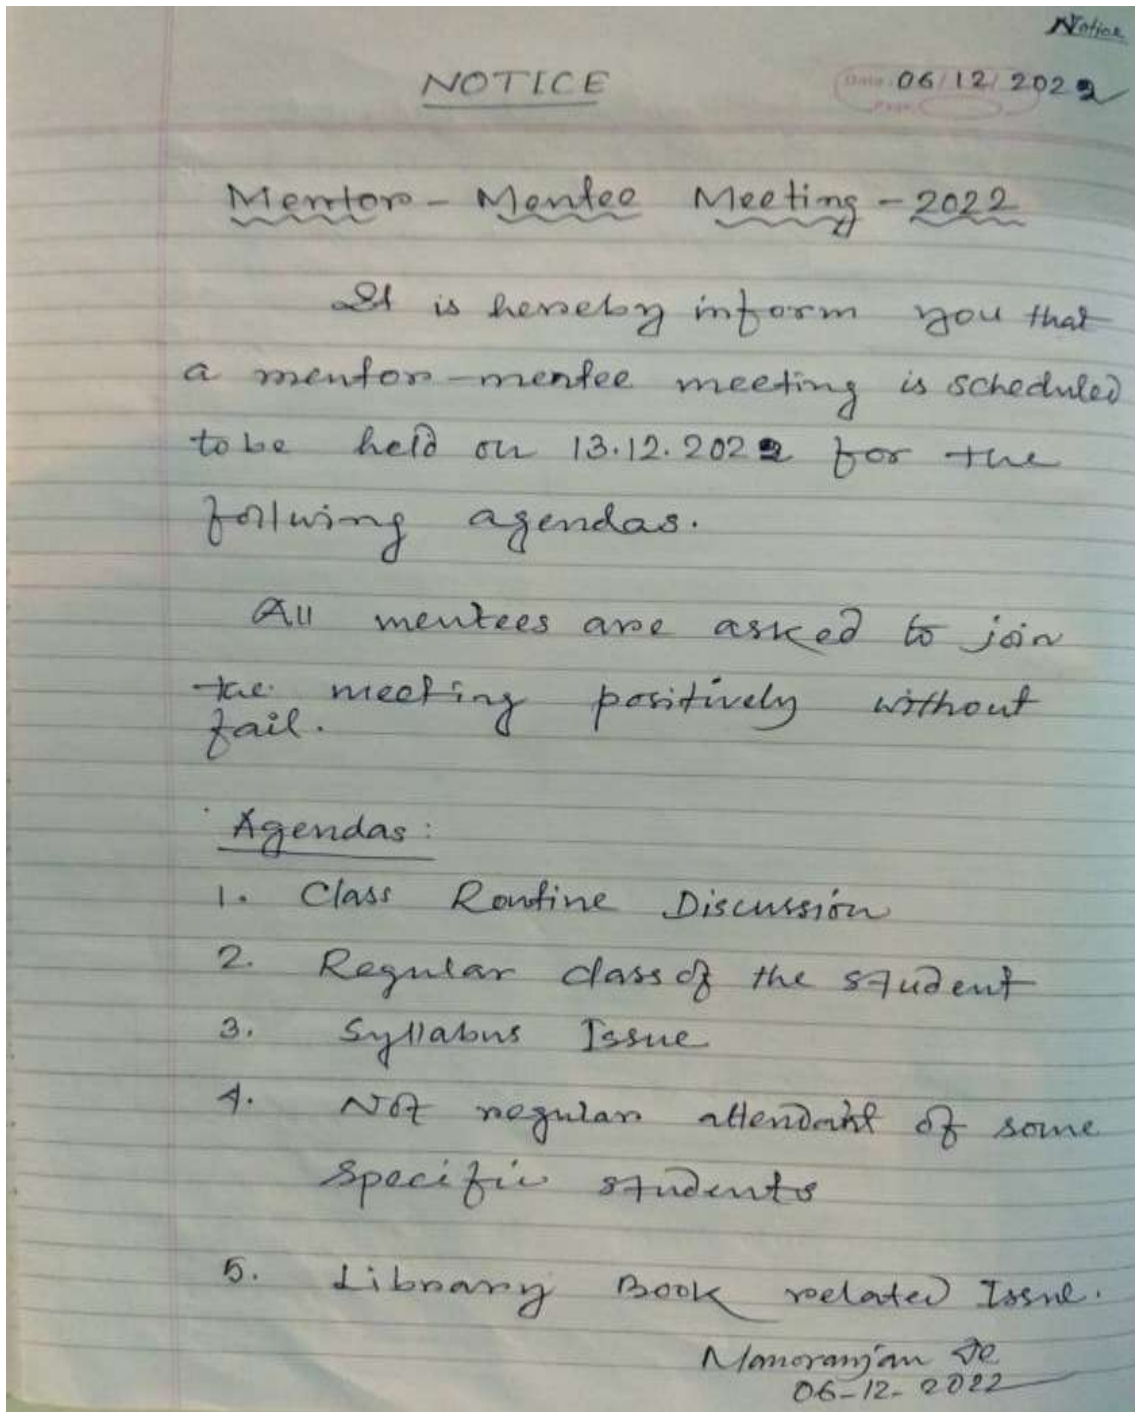 Notice
NOTICE
Date: 06/12/2022
Mentor - Mentee Meeting - 2022
It is hereby inform you that
a mentor-mentee meeting is scheduled
to be held on 13.12.2022 for the
follwing agendas.
All mentees are asked to join
the meeting positively without
fail.
Agendas:
1. Class Routine Discussion
2. Regular class of the student
3. Syllabus Issue
4. Not regular attendant of some
specific students
5. Library Book related Issue.
Manoranjan De
06-12-2022